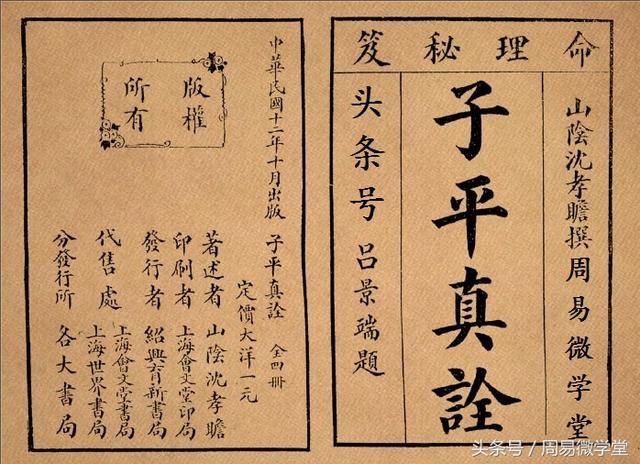 命理秘笈
山陰沈孝瞻撰周易微学堂
子平真詮
头条号吕景端題
中華民國十二年十月出版
子平真詮 全四冊
定價大洋一元
著述者 山陰沈孝瞻
印刷者 上海會文堂印局
發行者 紹興育新書局
代售處 上海會文堂書局
上海世界書局
分發行所 各大書局
版權
所有
头条号 / 周易微学堂